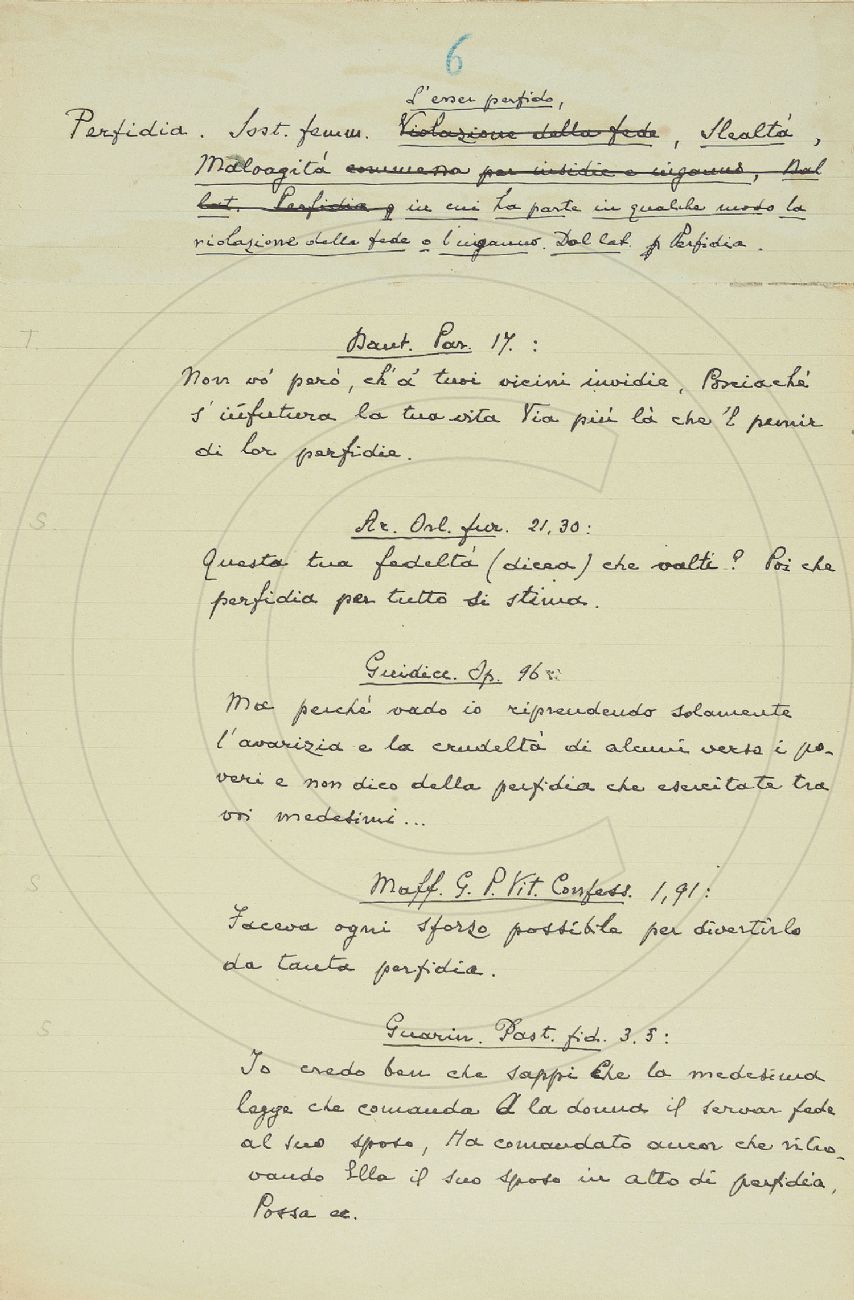 6
L'esser perfido,
Perfidia. Sost. femm. Violazione della fede, Slealtà,
Malvagità commessa per insidie e inganno, Dal
lat. Perfidia in cui ha parte in qualche modo la
violazione della fede o l'inganno. Dal lat. Perfidia.
T.
Dant. Par. 17.:
Non vó peró, ch'a' tuoi vicini invidie, Posciaché
s'infutura la tua vita Via piú là che 'l punir
di lor perfidie.
S.
Ar. Orl. fur. 21,30:
Questa tua fedeltá (dicea) che valti? Poi che
perfidia per tutto si stima.
Guidicc. Op. 96:
Ma perché vado io riprendendo solamente
l'avarizia e la crudeltà di alcuni verso i po-
veri e non dico della perfidia che esercitate tra
voi medesimi...
S
Maff. G. P. Vit. Confess. 1,91:
Faceva ogni sforzo possibile per divertirlo
da tanta perfidia.
S
Guarin. Past. fid. 3.5:
Io credo ben che sappi Che la medesima
legge che comanda A la donna il servar fede
al suo sposo, Ha comandato ancor che ritro-
vando Ella il suo sposo in atto di perfidia,
Possa ec.